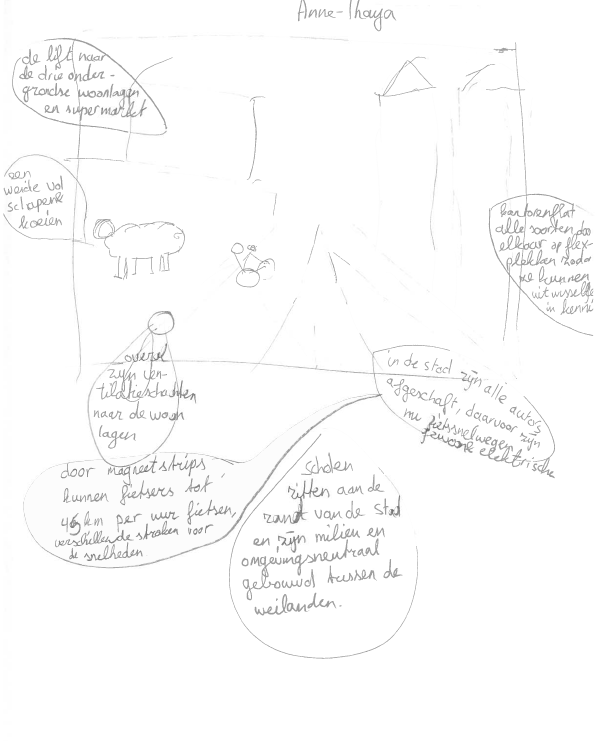 Anne-Thaya
de lift naar
de drie onder-
grondse woonlagen
en supermarkt
een
weide vol
schapen&
koeien
kantorenflat
alle soorten door
elkaar op flex-
plekken zoda
ze kunnen
uitwissele
in kenni
overal
zijn ven-
tilatieschachten
naar de woon
lagen
in de stad zijn alle auto's
afgeschaft, daarvoor zijn
nu fietssnelwegen
gewone elektrische
door magneetstrips
kunnen fietsers tot
45 km per uur fietsen,
verschillende stroken voor
de snelheden
Scholen
zitten aan de
rand van de stad
en zijn milieu en
omgevingsneutraal
gebouwd tussen de
weilanden.